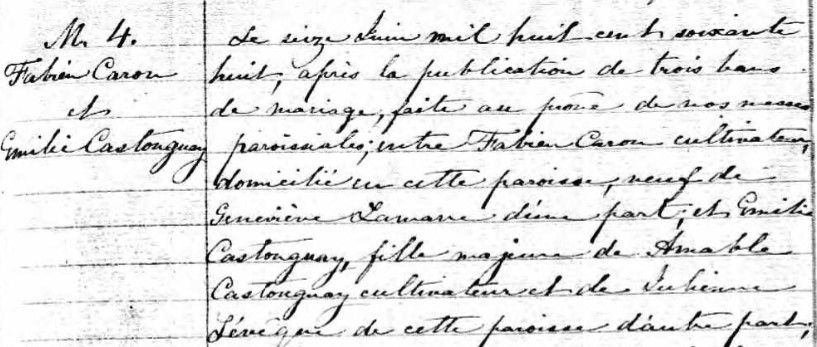 M. 4.
Fabien Caron
et
Emilie Castonguay
Le seize Juin mil huit cent soixante
huit, après la publication de trois bans
de mariage, faite au prône de nos messes
paroissiales, entre Fabien Caron cultivateur,
domicilié en cette paroisse, veuf de
Geneviève Lamarre d'une part, et Emilie
Castonguay, fille majeure de Amable
Castonguay cultivateur et de Julienne
Lévêque de cette paroisse d'autre part,